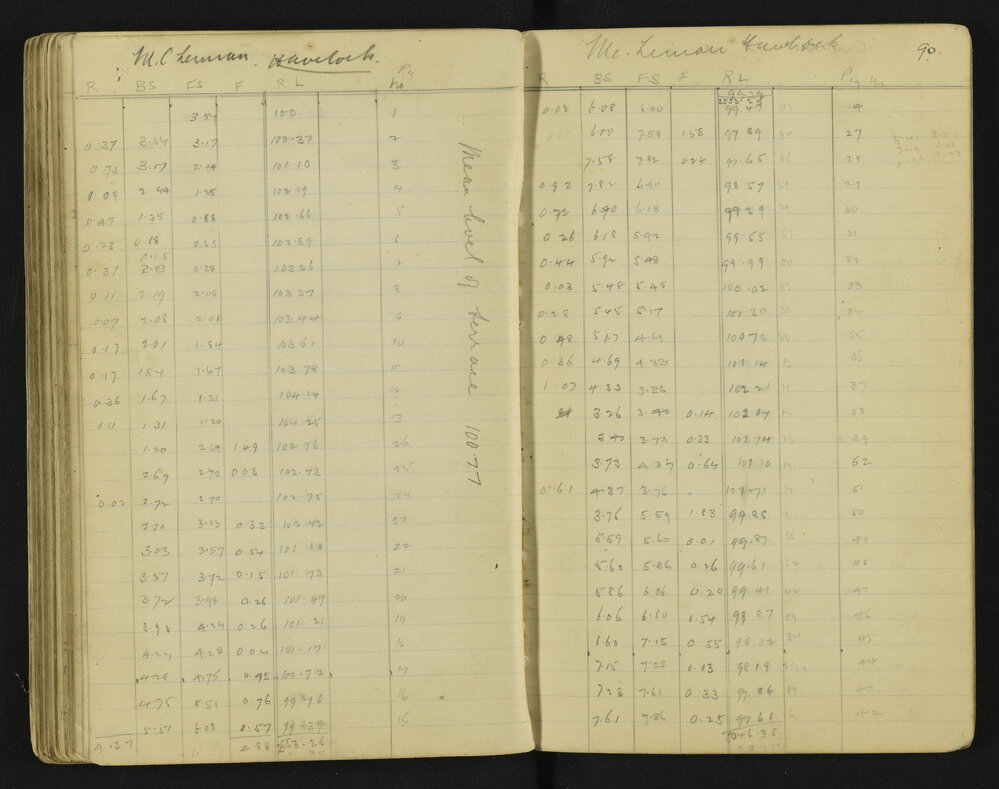 McLernan. Havelock.
R BS FS F RL Peg No
3.54 100 1
0.37 3.54 3.17 100.37 2
0.73 3.17 2.44 101.10 3
1.09 2.44 1.25 102.19 4
0.47 1.25 0.88 102.66 5
0.23 0.88 0.65 102.89 6
0.37 0.28 103.26 7
0.11 2.19 2.08 103.37 8
0.07 2.08 2.01 103.44
0.17 2.01 1.84 103.61 10
0.17 1.84 1.67 103.78 11
0.36 1.67 1.31 104.14
0.11 1.31 1.20 104.25 13
1.20 2.69 1.49 102.76 26
2.69 2.72 0.03 102.73 25
0.02 2.72 2.70 102.75 24
2.70 0.33 102.42 23
3.03 3.57 0.54 101.88 22
3.57 3.72 0.15 101.73 21
3.72 3.98 0.26 101.47 20
3.98 4.24 0.26 101.21 19
4.24 4.28 0.04 101.17
4.28 4.75 0.45 100.72 17
4.75 5.51 0.76 99.96 16
5.51 6.08 0.57 99.39 15
4.27 4.88
Mean level of terrace 100.77
Mc. Lernan Havelock 90.
R BS FS F RL Peg No
0.08 6.08 6.00 99.47 14
6.00 7.58 1.58 97.89 27
7.58 7.82 0.24 97.65 28
0.92 7.82 6.90 98.57 29
0.72 6.90 6.18 99.29 30
0.26 6.18 5.92 99.55 31
0.44 5.92 5.48 99.99 32
0.03 5.48 5.45 100.02 33
0.28 5.45 5.17 100.30 34
0.48 5.17 4.69 100.78 35
0.36 4.69 4.33 101.14 36
1.07 4.33 3.26 102.21 37
3.26 3.40 0.14 102.07 38
3.40 3.73 0.33 101.74 39
3.73 4.37 0.64 101.10 52
0.61 4.37 3.76 101.71 51
3.76 5.59 1.83 99.88 50
5.59 5.60 0.01 99.87 49
5.60 5.86 0.26 99.61 48
5.86 6.06 0.20 99.41 47
6.06 6.60 0.54 98.87 46
6.60 7.15 0.55 98.32 45
7.15 7.28 0.13 98.19 44
7.28 7.61 0.33 97.86 43
7.61 7.86 0.25 97.61 42